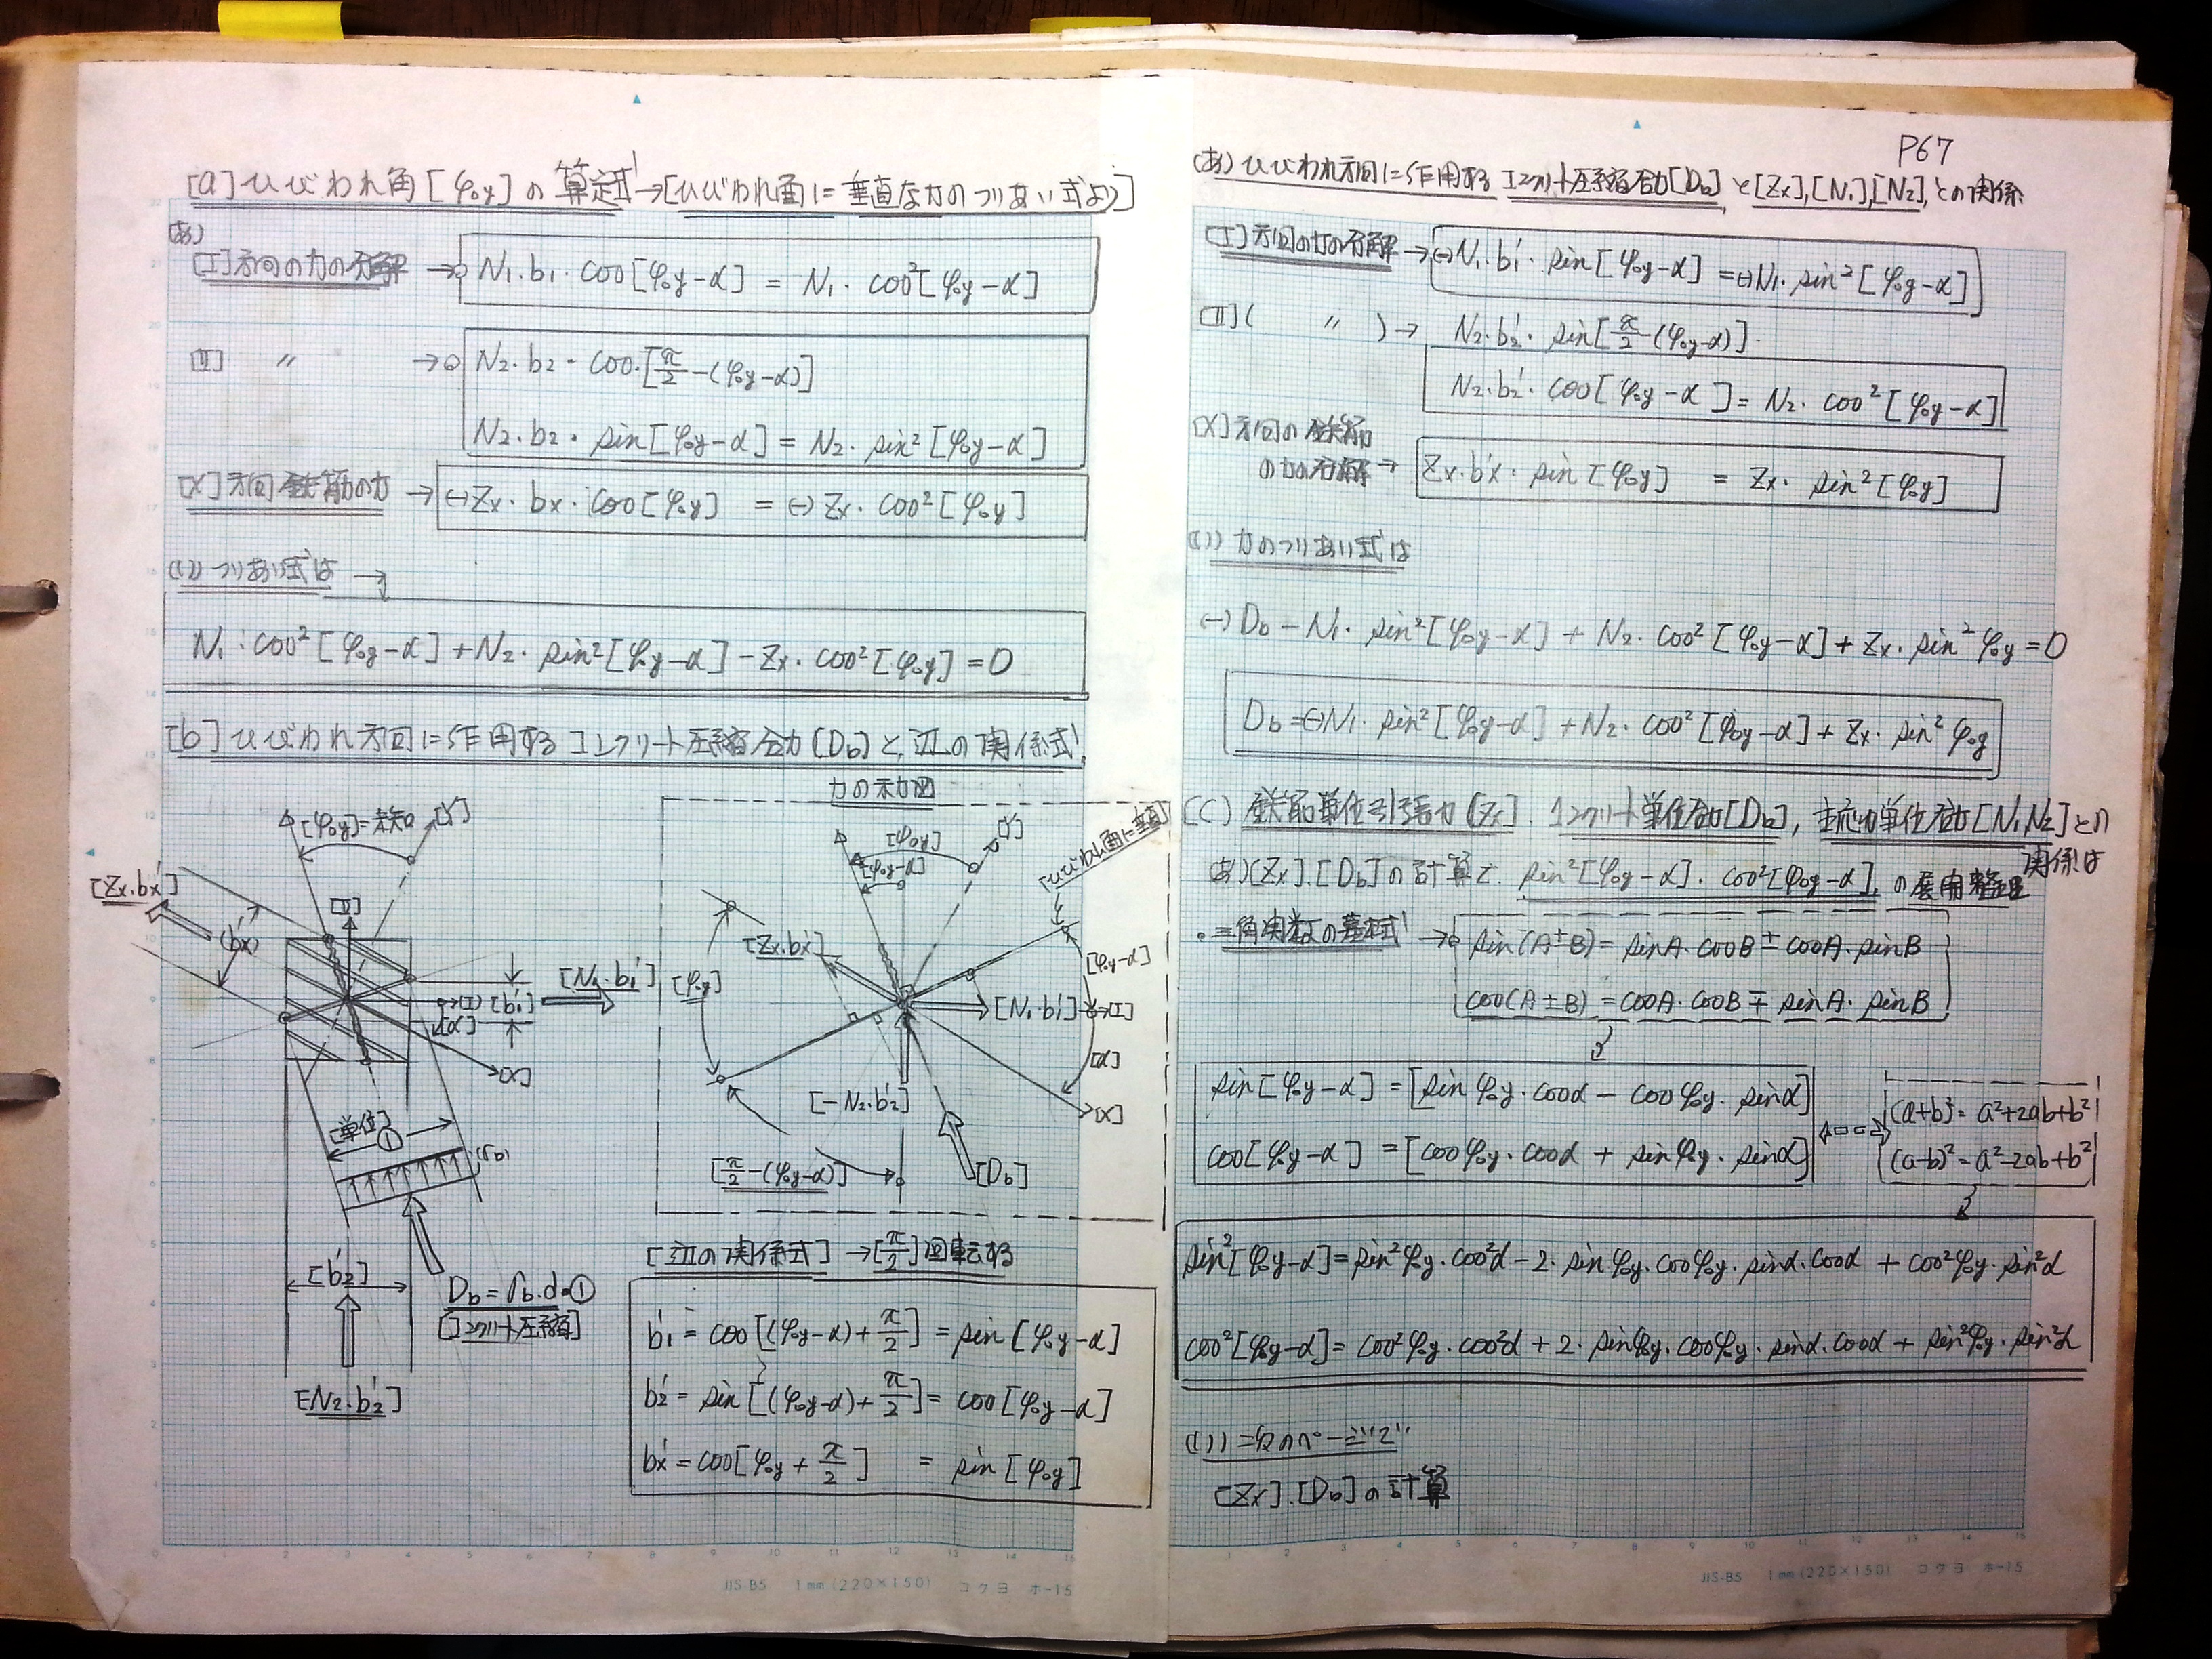 [a]ひびわれ角[φoy]の算定式→[ひびわれ面に垂直な力のつりあい式より]
(あ)
[I]方向の力の分解 → N1・b1・cos[φoy-α] = N1・cos²[φoy-α]
[II] 〃 → N2・b2・cos・[π/2-(φoy-α)]
N2・b2・sin[φoy-α] = N2・sin²[φoy-α]
[X]方向鉄筋の力 → (-)Zx・bx・cos[φoy] = (-)Zx・cos²[φoy]
(い)つりあい式は →
N1・cos²[φoy-α]+N2・sin²[φoy-α]-Zx・cos²[φoy]=0
[b]ひびわれ方向に作用するコンクリート圧縮合力[Db]と、辺の関係式
[φoy]=未知
[Y]
[Zx・bx']
(bx')
[II]
[N1・b1']
→[I] [b1']
[α]
[X]
[単位]
①
(σb)
[b2']
Db=σb・d・①
[コンクリート圧縮]
[N2・b2']
力の示力図
[φoy]
[φoy-α]
[Y]
[ひびわれ面に垂直]
[Zx・bx']
[φoy]
[φoy-α]
[N1・b1']→[I]
[α]
[-N2・b2']
[X]
[π/2-(φoy-α)]
[Db]
[辺の関係式]→[π/2]回転する
b1' = cos[(φoy-α)+π/2] = sin[φoy-α]
b2' = sin[(φoy-α)+π/2] = cos[φoy-α]
bx' = cos[φoy+π/2] = sin[φoy]
JIS-B5 1mm(220×150) コクヨ ホ-15
P67
(あ)ひびわれ方向に作用するコンクリート圧縮合力[Db]と[Zx],[N1],[N2],との関係
[I]方向の力の分解→(-)N1・b1'・sin[φoy-α] =(-)N1・sin²[φoy-α]
[II]( 〃 )→ N2・b2'・sin[π/2-(φoy-α)]
N2・b2'・cos[φoy-α] = N2・cos²[φoy-α]
[X]方向の鉄筋
の力の分解→ Zx・bx'・sin[φoy] = Zx・sin²[φoy]
(い)力のつりあい式は
(-)Db-N1・sin²[φoy-α]+N2・cos²[φoy-α]+Zx・sin²φoy=0
Db=(-)N1・sin²[φoy-α]+N2・cos²[φoy-α]+Zx・sin²φoy
(C)鉄筋単位引張力[Zx]、コンクリート単位合力[Db],主応力単位合力[N1,N2]との
関係は
あ)[Zx].[Db]の計算で、sin²[φoy-α].cos²[φoy-α],の展開整理
。三角関数の基本式→ sin(A±B)= sinA・cosB ± cosA・sinB
cos(A±B) = cosA・cosB ∓ sinA・sinB
sin[φoy-α] = [sinφoy・cosα - cosφoy・sinα]
cos[φoy-α] = [cosφoy・cosα + sinφoy・sinα]
(a+b)²= a²+2ab+b²
(a-b)²= a²-2ab+b²
sin²[φoy-α]=sin²φoy・cos²α-2・sinφoy・cosφoy・sinα・cosα + cos²φoy・sin²α
cos²[φoy-α]= cos²φoy・cos²α + 2・sinφoy・cosφoy・sinα・cosα + sin²φoy・sin²α
(い)次のページで
[Zx].[Db]の計算
JIS-B5 1mm(220×150) コクヨ ホ-15